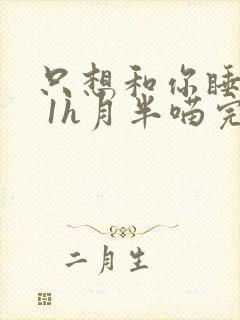 只想和你睡
1h月半喵完
二月生